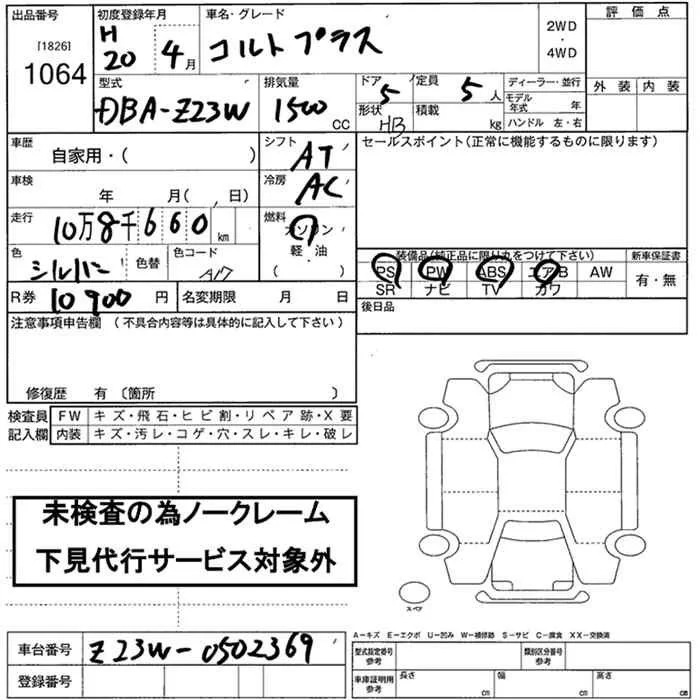 出品番号 初度登録年月 車名・グレード 評価点
[1826]
1064
H
20 4月
コルトプラス
2WD
・
4WD
外装 内装
型式 排気量 ドア 定員 ディーラー・並行
DBA-Z23W 1500 CC
5 5人
モデル年式 年
形状 積載
HB kg ハンドル 左・右
車歴 シフト セールスポイント(正常に機能するものに限ります)
自家用・( ) AT
車検 冷房
年 月( 、 日) AC
走行 燃料
10万8千660km ガソリン
軽・油
( )
色 色替 色コード
シルバー A17
装備品(純正品に限り丸をつけて下さい) 新車保証書
PS PW ABS エアB AW
SR ナビ TV カワ
有・無
R券 10900円 名変期限 月 日
後日品
注意事項申告欄 (不具合内容等は具体的に記入して下さい)
修復歴 有 〔箇所 〕
検査員 FW キズ・飛石・ヒビ割・リペア跡・X要
記入欄 内装 キズ・汚レ・コゲ・穴・スレ・キレ・破レ
未検査の為ノークレーム
下見代行サービス対象外
スペア
A-キズ E-エクボ U-凹み W-補修跡 S-サビ C-腐食 XX-交換済
車台番号 Z23W-0502369
型式指定番号 参考 類別区分番号 参考
登録番号
車庫証明用 参考 長さ cm 幅 cm 高さ cm